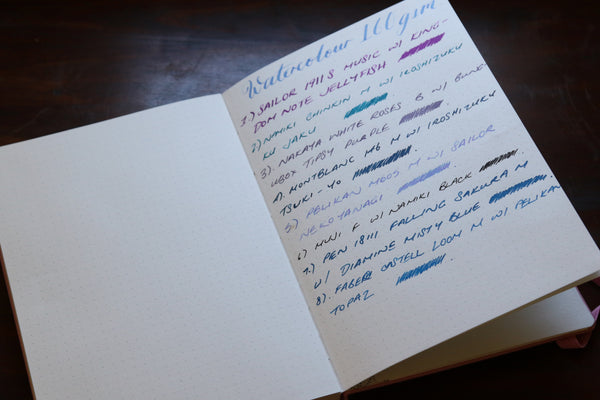 Watercolour 160gsm
1.) SAILOR 1911S MUSIC W/ KING-
DOM NOTE JELLYFISH
2) NAMIKI CHINKIN M W/ IROSHIZUKU
KU JAKU
3). NAKAYA WHITE ROSES B W/ BUNG
UBOX TIPSY PURPLE
4). MONTBLANC 146 M W/ IROSHIZUKU
TSUKI-YO
5) PELIKAN M005 M W/ SAILOR
NEKOYANAGI
6) MUJI F W/ NAMIKI BLACK
7.) PEN 18111 FALLING SAKURA M
W/ DIAMINE MISTY BLUE
8). FABER CASTELL LOOM M W/ PELIKAN
TOPAZ